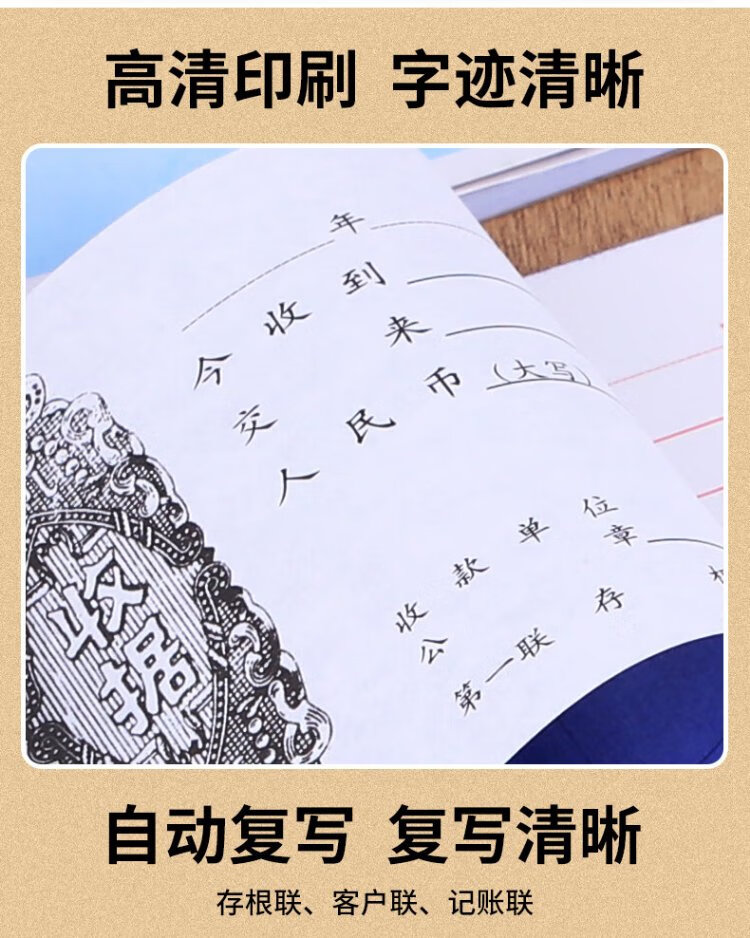 高清印刷 字迹清晰
年
今收到
交来
人民币(大写)
收款单位
公章
第一联存根
收据
自动复写 复写清晰
存根联、客户联、记账联